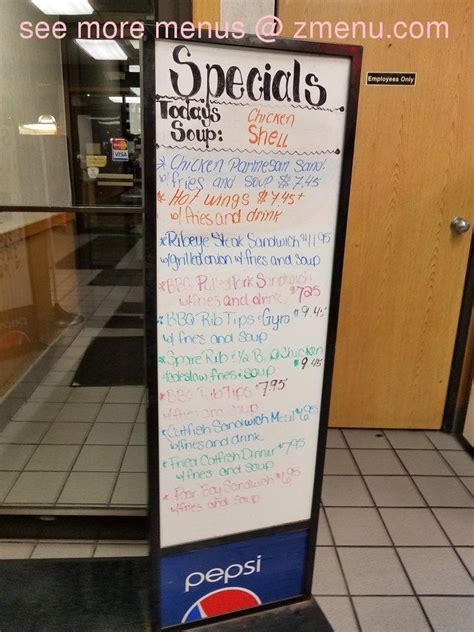 see more menus @ zmenu.com
Specials
Todays Chicken
Soup: Shell
Employees Only
VISA
* Chicken Parmesan Sand.
w/ fries and soup $7.45
* Hot wings $7.45+
w/ fries and drink
* Ribeye Steak Sandwich $11.95
w/grilled onion w/fries and soup
* BBQ Pulled Pork Sandwich
w/fries and drink $7.25
* BBQ Rib Tips & Gyro $9.45
w/ fries and soup
* Spare Rib & 1/2 BBQ Chicken
coleslaw fries & soup $9.45
* BBQ Rib Tips $7.95
w/fries and soup
* Catfish Sandwich Meal $6.95
w/fries and drink
* Fried Catfish Dinner $7.95
w/ fries and soup
* Poor Boy Sandwich $6.95
w/fries and soup
pepsi